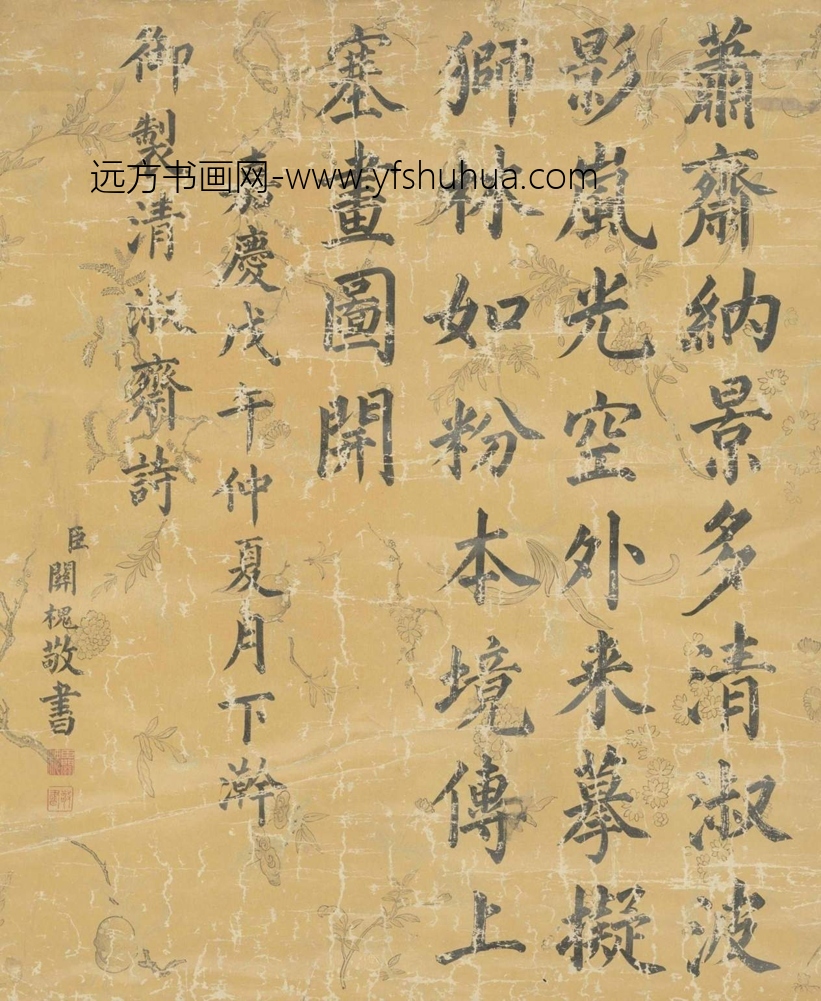 蕭齋納景多清淑波
影嵐光空外来摹擬
獅林如粉本境傳上
塞畫圖開
嘉慶戊午仲夏月下澣
御製清淑齋詩
臣關槐敬書
远方书画网-www.yfshuhua.com